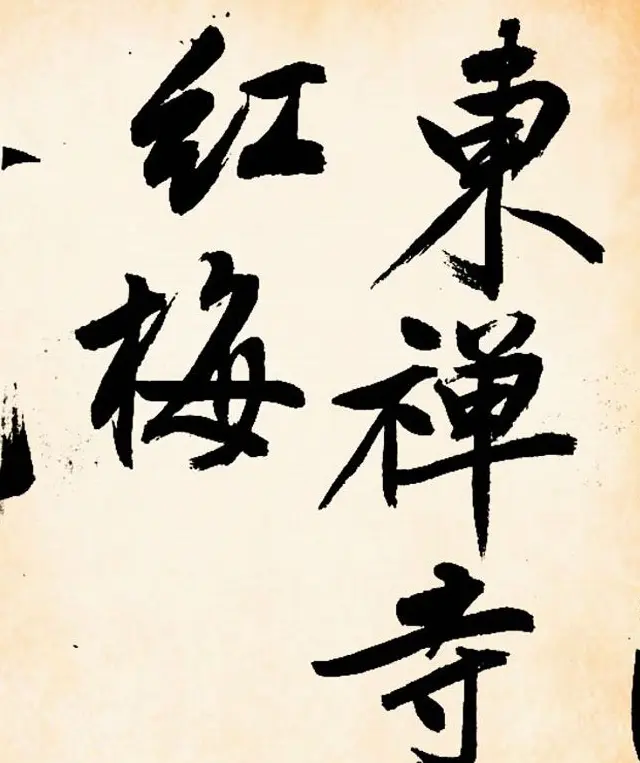 東禅寺
紅梅